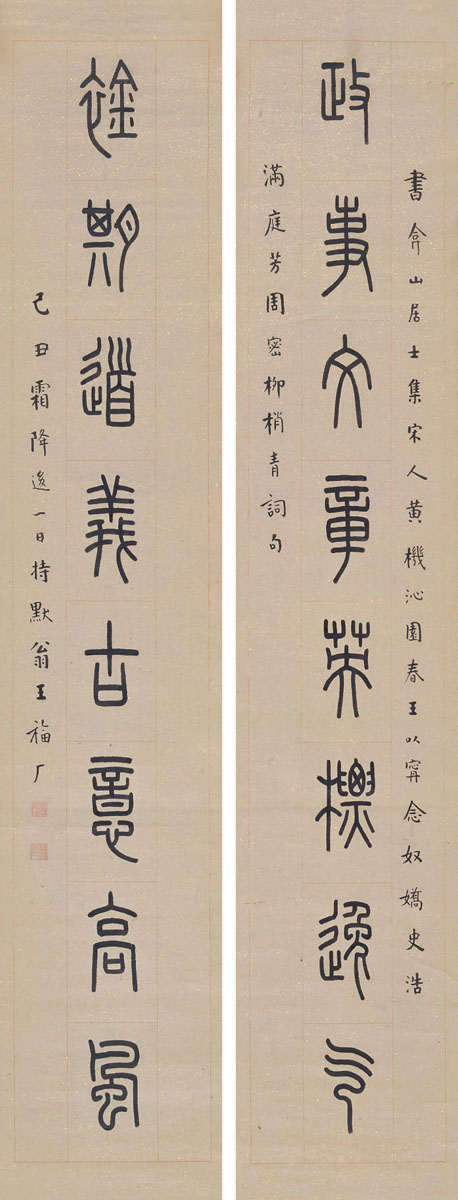 書弇山居士集宋人黃機沁園春王以寧念奴嬌史浩
政事文章英標逸气
滿庭芳周密柳梢青詞句
䘳期道義古意高風
己丑霜降後一日持默翁王福厂